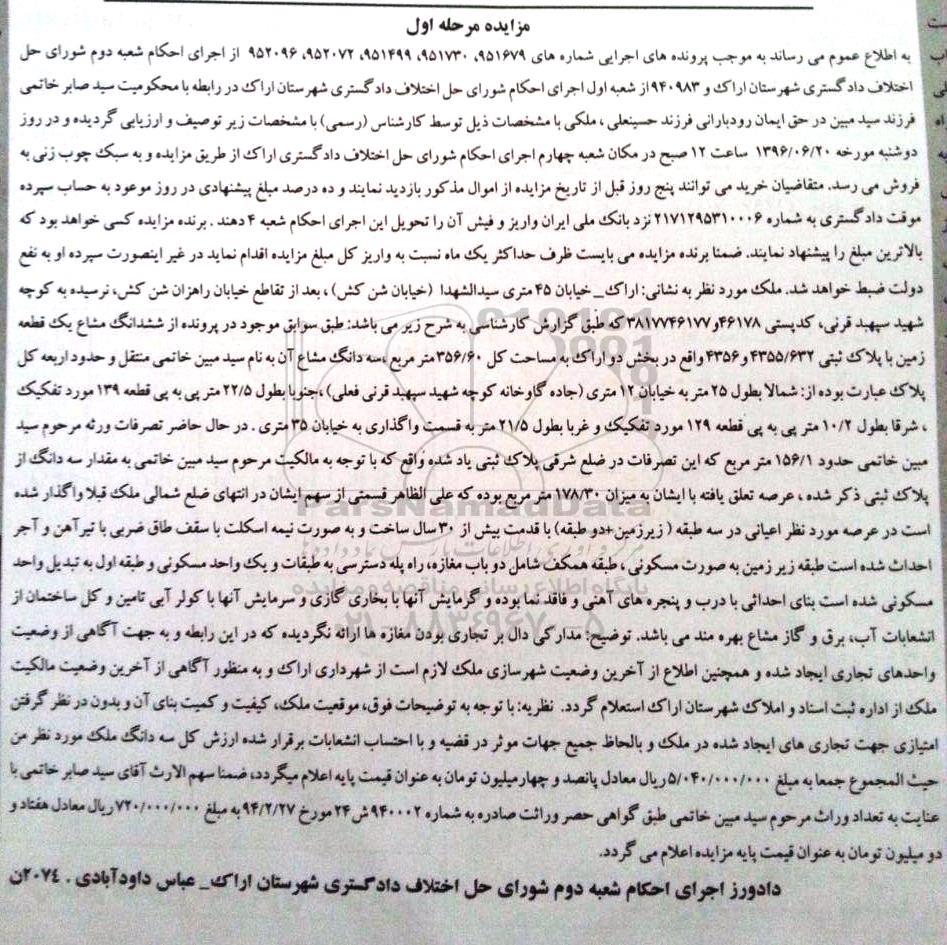 مزایده مرحله اول
به اطلاع عموم می رساند به موجب پرونده های اجرایی شماره های ۹۵۱۶۷۹، ۹۵۱۷۳۰، ۹۵۱۴۹۹، ۹۵۲۰۷۲، ۹۵۲۰۹۶ از اجرای احکام شعبه دوم شورای حل
اختلاف دادگستری شهرستان اراک و ۹۴۰۹۸۳از شعبه اول اجرای احکام شورای حل اختلاف دادگستری شهرستان اراک در رابطه با محکومیت سید صابر خاتمی
فرزند سید مبین در حق ایمان رودبارانی فرزند حسینعلی ، ملکی با مشخصات ذیل توسط کارشناس (رسمی) با مشخصات زیر توصیف و ارزیابی گردیده و در روز
دوشنبه مورخه ۱۳۹۶/۰۶/۲۰ ساعت ۱۲ صبح در مکان شعبه چهارم اجرای احکام شورای حل اختلاف دادگستری اراک از طریق مزایده و به سبک چوب زنی به
فروش می رسد. متقاضیان خرید می توانند پنج روز قبل از تاریخ مزایده از اموال مذکور بازدید نمایند و ده درصد مبلغ پیشنهادی در روز موعود به حساب سپرده
موقت دادگستری به شماره ۲۱۷۱۲۹۵۳۱۰۰۰۶ نزد بانک ملی ایران واریز و فیش آن را تحویل این اجرای احکام شعبه ۴ دهند . برنده مزایده کسی خواهد بود که
بالاترین مبلغ را پیشنهاد نمایند. ضمنا برنده مزایده می بایست ظرف حداکثر یک ماه نسبت به واریز کل مبلغ مزایده اقدام نماید در غیر اینصورت سپرده او به نفع
دولت ضبط خواهد شد. ملک مورد نظر به نشانی: اراک_ خیابان ۴۵ متری سیدالشهدا (خیابان شن کش) ، بعد از تقاطع خیابان راهزان شن کش، نرسیده به کوچه
شهید سپهبد قرنی، کدپستی ۴۶۱۷۸و۳۸۱۷۷۴۶۱۷۷ که طبق گزارش کارشناسی به شرح زیر می باشد: طبق سوابق موجود در پرونده از ششدانگ مشاع یک قطعه
زمین با پلاک ثبتی ۴۳۵۵/۶۳۲ و ۴۳۵۶ واقع در بخش دو اراک به مساحت کل ۳۵۶/۶۰ متر مربع ،سه دانگ مشاع آن به نام سید مبین خاتمی منتقل و حدود اربعه کل
پلاک عبارت بوده از: شمالا بطول ۲۵ متر به خیابان ۱۲ متری (جاده گاوخانه کوچه شهید سپهبد قرنی فعلی) ،جنوبا بطول ۲۲/۵ متر پی به پی قطعه ۱۳۹ مورد تفکیک
، شرقا بطول ۱۰/۲ متر پی به پی قطعه ۱۲۹ مورد تفکیک و غربا بطول ۲۱/۵ متر به قسمت واگذاری به خیابان ۳۵ متری . در حال حاضر تصرفات ورثه مرحوم سید
مبین خاتمی حدود ۱۵۶/۱ متر مربع که این تصرفات در ضلع شرقی پلاک ثبتی یاد شده واقع که با توجه به مالکیت مرحوم سید مبین خاتمی به مقدار سه دانگ از
پلاک ثبتی ذکر شده ، عرصه تعلق یافته با ایشان به میزان ۱۷۸/۳۰ متر مربع بوده که علی الظاهر قسمتی از سهم ایشان در انتهای ضلع شمالی ملک قبلا واگذار شده
است در عرصه مورد نظر اعیانی در سه طبقه ( زیرزمین+دو طبقه) با قدمت بیش از ۳۰ سال ساخت و به صورت نیمه اسکلت با سقف طاق ضربی با تیرآهن و آجر
احداث شده است طبقه زیر زمین به صورت مسکونی ، طبقه همکف شامل دو باب مغازه، راه پله دسترسی به طبقات و یک واحد مسکونی و طبقه اول به تبدیل واحد
مسکونی شده است بنای احداثی با درب و پنجره های آهنی و فاقد نما بوده و گرمایش آنها با بخاری گازی و سرمایش آنها با کولر آبی تامین و کل ساختمان از
انشعابات آب، برق و گاز مشاع بهره مند می باشد. توضیح: مدارکی دال بر تجاری بودن مغازه ها ارائه نگردیده که در این رابطه و به جهت آگاهی از وضعیت
واحدهای تجاری ایجاد شده و همچنین اطلاع از آخرین وضعیت شهرسازی ملک لازم است از شهرداری اراک و به منظور آگاهی از آخرین وضعیت مالکیت
ملک از اداره ثبت اسناد و املاک شهرستان اراک استعلام گردد. نظریه: با توجه به توضیحات فوق، موقعیت ملک، کیفیت و کمیت بنای آن و بدون در نظر گرفتن
امتیازی جهت تجاری های ایجاد شده در ملک و بالحاظ جمیع جهات موثر در قضیه و با احتساب انشعابات برقرار شده ارزش کل سه دانگ ملک مورد نظر من
حیث المجموع جمعا به مبلغ ۵/۰۴۰/۰۰۰/۰۰۰ ریال معادل پانصد و چهار میلیون تومان به عنوان قیمت پایه اعلام میگردد، ضمنا سهم الارث آقای سید صابر خاتمی با
عنایت به تعداد وراث مرحوم سید مبین خاتمی طبق گواهی حصر وراثت صادره به شماره ۹۴۰۰۰۲ ش ۲۴ مورخ ۹۴/۲/۲۷ به مبلغ ۷۲۰/۰۰۰/۰۰۰ ریال معادل هفتاد و
دو میلیون تومان به عنوان قیمت پایه مزایده اعلام می گردد.
دادورز اجرای احکام شعبه دوم شورای حل اختلاف دادگستری شهرستان اراک_ عباس داودآبادی . ۲۰۷٤ن
ParsNamadData
پایگاه اطلاع رسانی مناقصه و مزایده
۰۲۱-۸۸۳٤۹٦۷۰-۵